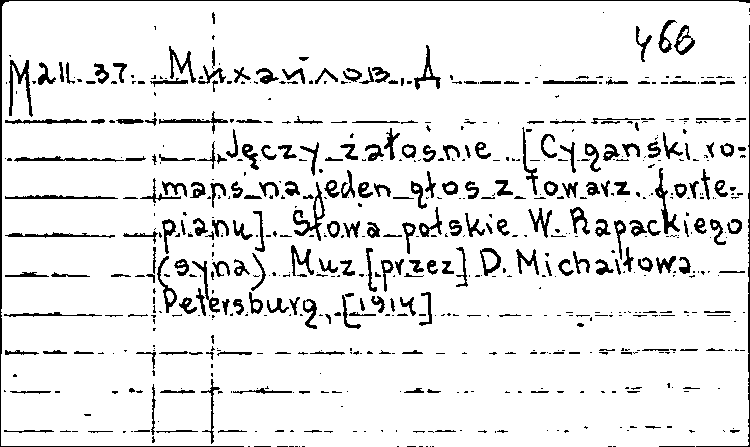 468
M211.37. Михайлов, Д.
Jęczy żałośnie. [Cygański ro-
mans na jeden głos z towarz. forte-
pianu]. Słowa polskie W. Rapackiego
(syna). Muz [przez] D. Michaiłowa.
Petersburg, [1914]